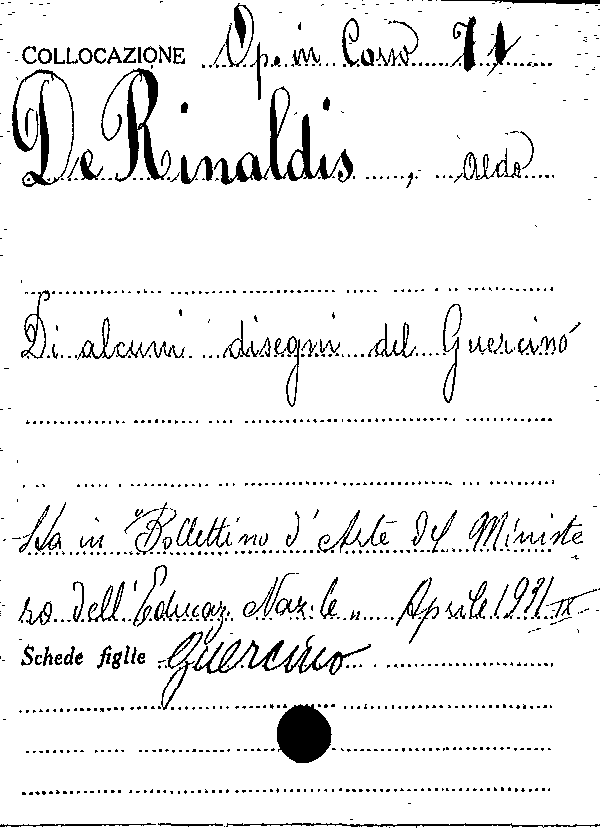 COLLOCAZIONE Op. in Corso 71
De Rinaldis, Aldo
Di alcuni disegni del Guercino
Sta in "Bollettino d'Arte del Ministe
ro dell'Educaz. Naz.le„ Aprile 1931 IX
Schede figlie Guercino